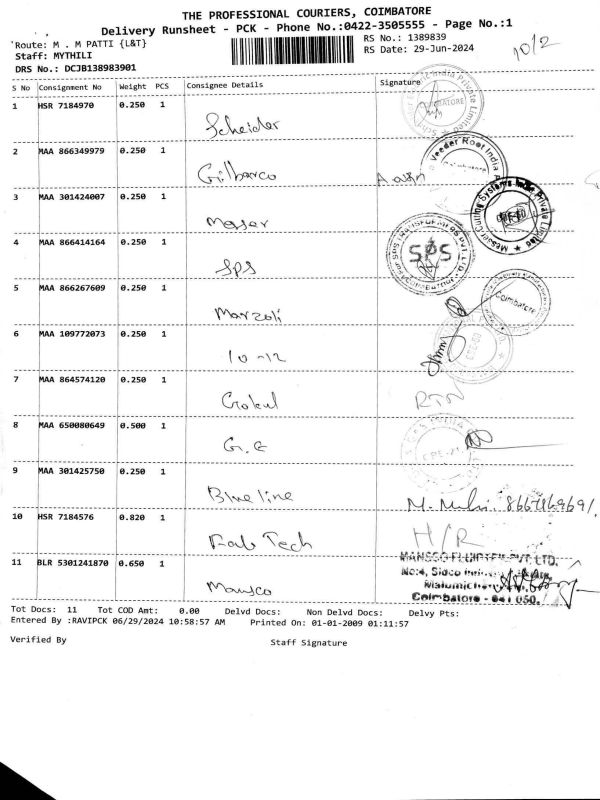 THE PROFESSIONAL COURIERS, COIMBATORE
Delivery Runsheet - PCK - Phone No.:0422-3505555 - Page No.:1
Route: M . M PATTI {L&T}
RS No.: 1389839
10/2
Staff: MYTHILI
RS Date: 29-Jun-2024
DRS No.: DCJB138983901
S No Consignment No Weight PCS Consignee Details Signature
1 HSR 7184970 0.250 1
Scheider
2 MAA 866349979 0.250 1
Gilbarco
Veeder Root India
Coimbatore
3 MAA 301424007 0.250 1
Maser
4 MAA 866414164 0.250 1
SPS
SPS
5 MAA 866267609 0.250 1
Marzoli
Coimbatore
6 MAA 109772073 0.250 1
10-12
7 MAA 864574120 0.250 1
Gokul
RTN
8 MAA 650080649 0.500 1
G.E
9 MAA 301425750 0.250 1
Blueline
10 HSR 7184576 0.820 1
Fab Tech
H/R
11 BLR 5301241870 0.650 1
Mansco
No:4, Sidco
Coimbatore - 641 050.
Tot Docs: 11 Tot COD Amt: 0.00 Delvd Docs: Non Delvd Docs: Delvy Pts:
Entered By :RAVIPCK 06/29/2024 10:58:57 AM Printed On: 01-01-2009 01:11:57
Verified By
Staff Signature